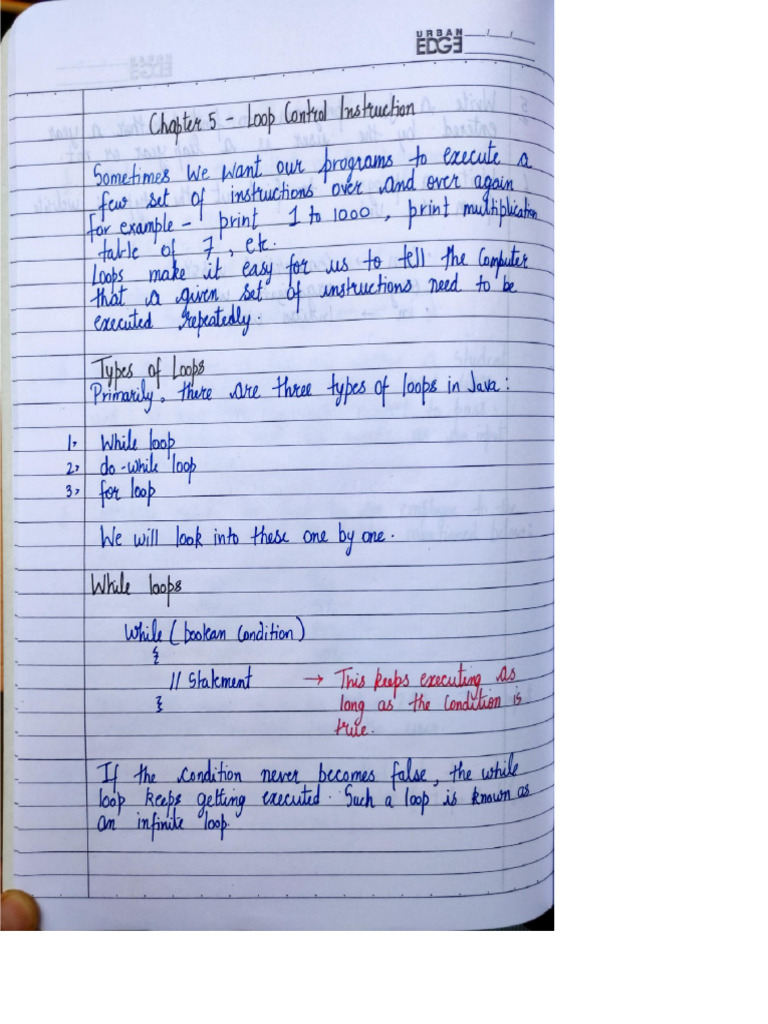 URBAN
EDGE
Chapter 5 - Loop Control Instruction
Sometimes we want our programs to execute a
few set of instructions over and over again
for example - print 1 to 1000, print multiplication
table of 7, etc.
Loops make it easy for us to tell the computer
that a given set of instructions need to be
executed repeatedly.
Types of Loops
Primarily, there are three types of loops in Java:
1, While loop
2, do-while loop
3, for loop
We will look into these one by one.
While loops
While (boolean condition)
{
// Statement → This keeps executing as
} long as the condition is
true.
If the condition never becomes false, the while
loop keeps getting executed. Such a loop is known as
an infinite loop.